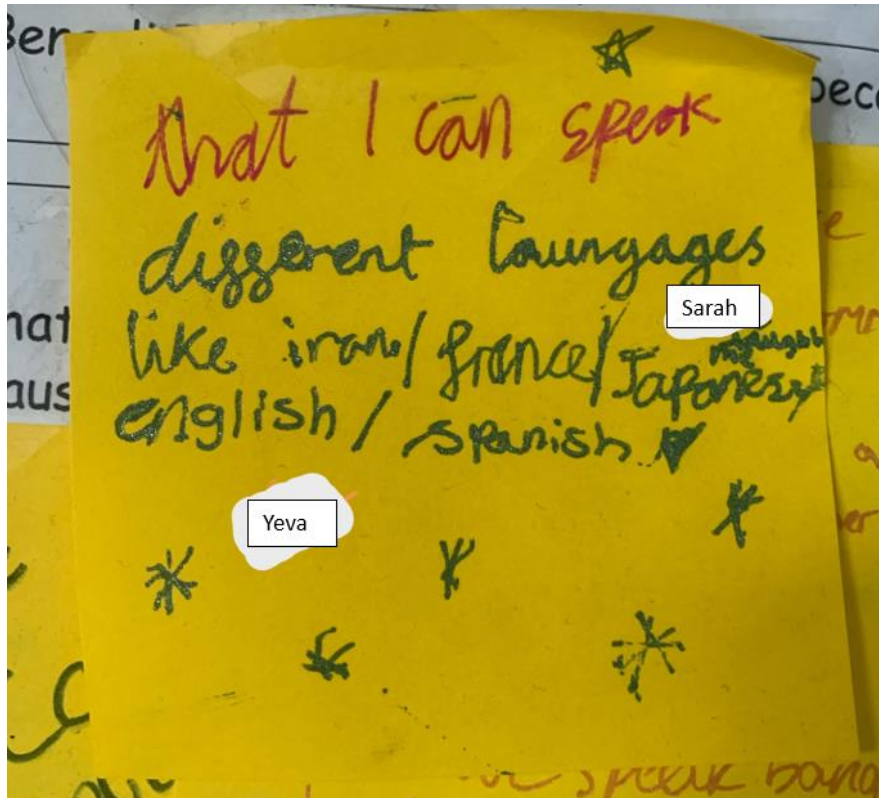 that I can speak
different loungages
Sarah
like iran/france/Japanese
english/spanish
Yeva